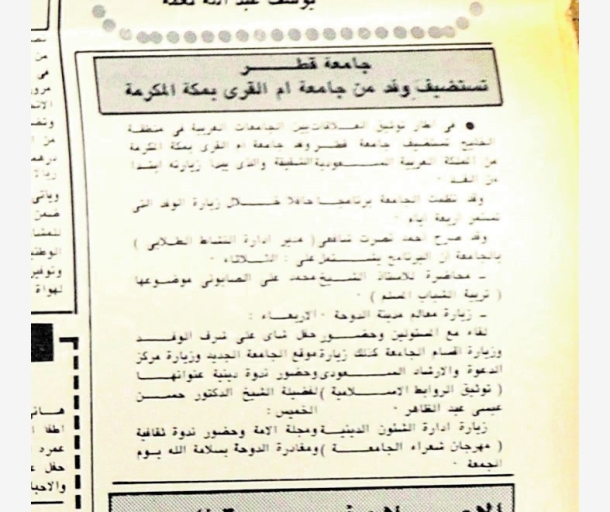 يوسف عبد الله نعمة
جامعة قطر
تستضيف وفد من جامعة ام القرى بمكة المكرمة
● في اطار توثيق العلاقات بين الجامعات العربية في منطقة
الخليج تستضيف جامعة قطر وفد جامعة ام القرى بمكة المكرمة
من المملكة العربية السعودية الشقيقة والذى يبدا زيارته ابتدا
من الغد ·
وقد نظمت الجامعة برنامجا حافلا خلال زيارة الوفد التى
تستمر اربعة ايام ·
وقد صرح احمد نصرت شافعى ( مدير ادارة النشاط الطلابى )
بالجامعة ان البرنامج يشتمل على : الثلاثاء ·
ـ محاضرة للاستاذ الشيخ محمد على الصابونى موضوعها
( تربية الشباب المسلم ) ·
ـ زيارة معالم مدينة الدوحة · الاربعاء :
لقاء مع المسئولين وحضور حفل شاى على شرف الوفد
وزيارة اقسام الجامعة كذلك زيارة موقع الجامعة الجديد وزيارة مركز
الدعوة والارشاد السعودى وحضور ندوة دينية عنوانها
( توثيق الروابط الاسلامية ) لفضيلة الشيخ الدكتور حسن
عيسى عبد الظاهر · الخميس :
زيارة ادارة الشئون الدينية ومجلة الامة وحضور ندوة ثقافية
( مهرجان شعراء الجامعة ) ومغادرة الدوحة بسلامة الله يوم
الجمعة ·
من
فى
درهم
ريالا
وياتى
ضمن
الوطنى
وتوفير
لهواة
هانى
اطفا
عمره
حفل
والاحبا